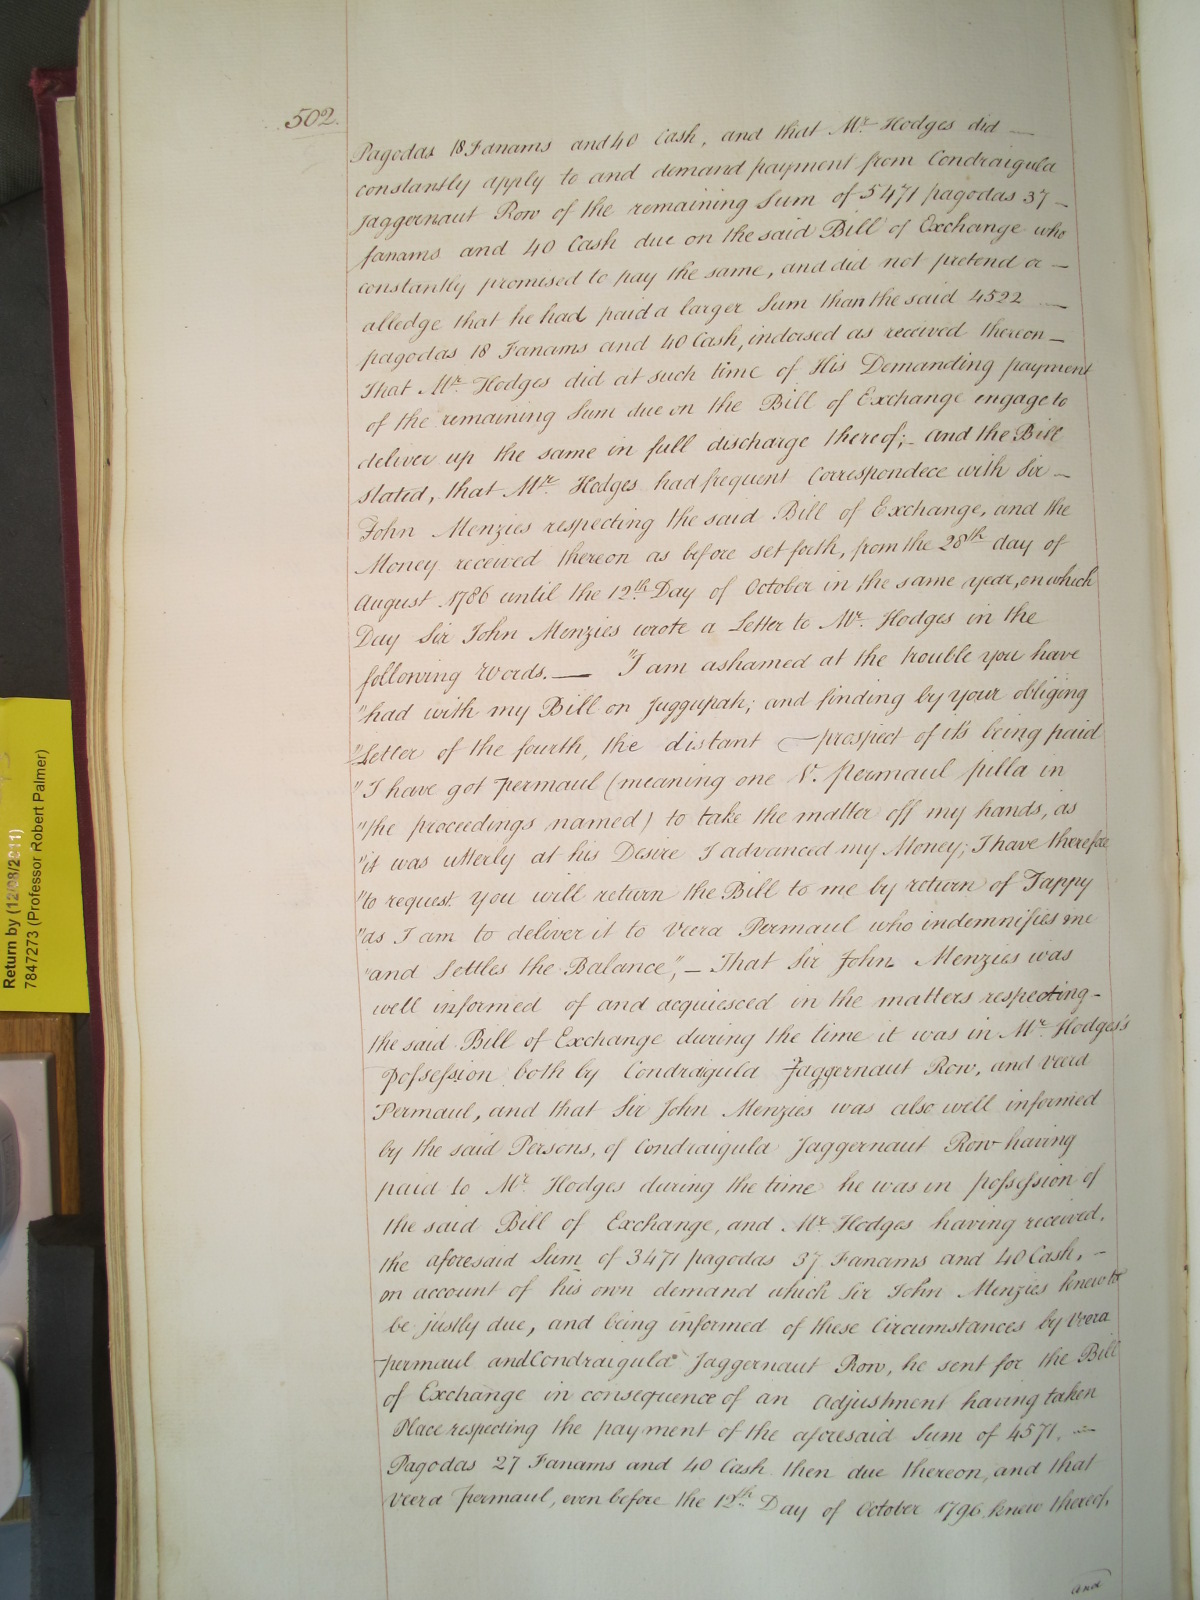 502.
Pagodas 18 Fanams and 40 Cash, and that Mr. Hodges did —
constantly apply to and demand payment from Condraigula
Jaggernaut Row of the remaining Sum of 5471 pagodas 37 —
fanams and 40 Cash due on the said Bill of Exchange who
constantly promised to pay the same, and did not pretend or —
alledge that he had paid a larger Sum than the said 4522 —
pagodas 18 Fanams and 40 Cash, indorsed as received thereon —
That Mr. Hodges did at such time of His Demanding payment
of the remaining Sum due on the Bill of Exchange engage to
deliver up the same in full discharge thereof; - and the Bill
stated, that Mr. Hodges had frequent Correspondece with Sir —
John Menzies respecting the said Bill of Exchange, and the
Money received thereon as before set forth, from the 28th day of
August 1786 until the 12th Day of October in the same year, on which
Day Sir John Menzies wrote a Letter to Mr. Hodges in the
following Words. — "I am ashamed at the trouble you have
"had with my Bill on Juggupah; and finding by your obliging
"Letter of the fourth, the distant — prospect of it's being paid
"I have got Permaul (meaning one V. Permaul pilla in
"the proceedings named) to take the matter off my hands, as
"it was utterly at his Desire I advanced my Money; I have therefore
"to request you will return the Bill to me by return of Tappy
"as I am to deliver it to Veera Permaul who indemnifies me
"and Settles the Balance", — That Sir John Menzies was
well informed of and acquiesced in the matters respecting -
the said Bill of Exchange during the time it was in Mr. Hodges's
possession both by Condraigula Jaggernaut Row, and Veera
Permaul, and that Sir John Menzies was also well informed
by the said Persons, of Condraigula Jaggernaut Row having
paid to Mr. Hodges during the time he was in possession of
the said Bill of Exchange, and Mr. Hodges having received,
the aforesaid Sum of 3471 pagodas 37 Fanams and 40 Cash, -
on account of his own demand which Sir John Menzies knew to
be justly due, and being informed of these Circumstances by Veera
permaul and Condraigula Jaggernaut Row, he sent for the Bill
of Exchange in consequence of an adjustment having taken
Place respecting the payment of the aforesaid Sum of 4571. —
Pagodas 27 Fanams and 40 Cash then due thereon, and that
Veera Permaul, even before the 12th Day of October 1796 knew thereof,
and
Return by (12/08/2011)
7847273 (Professor Robert Palmer)